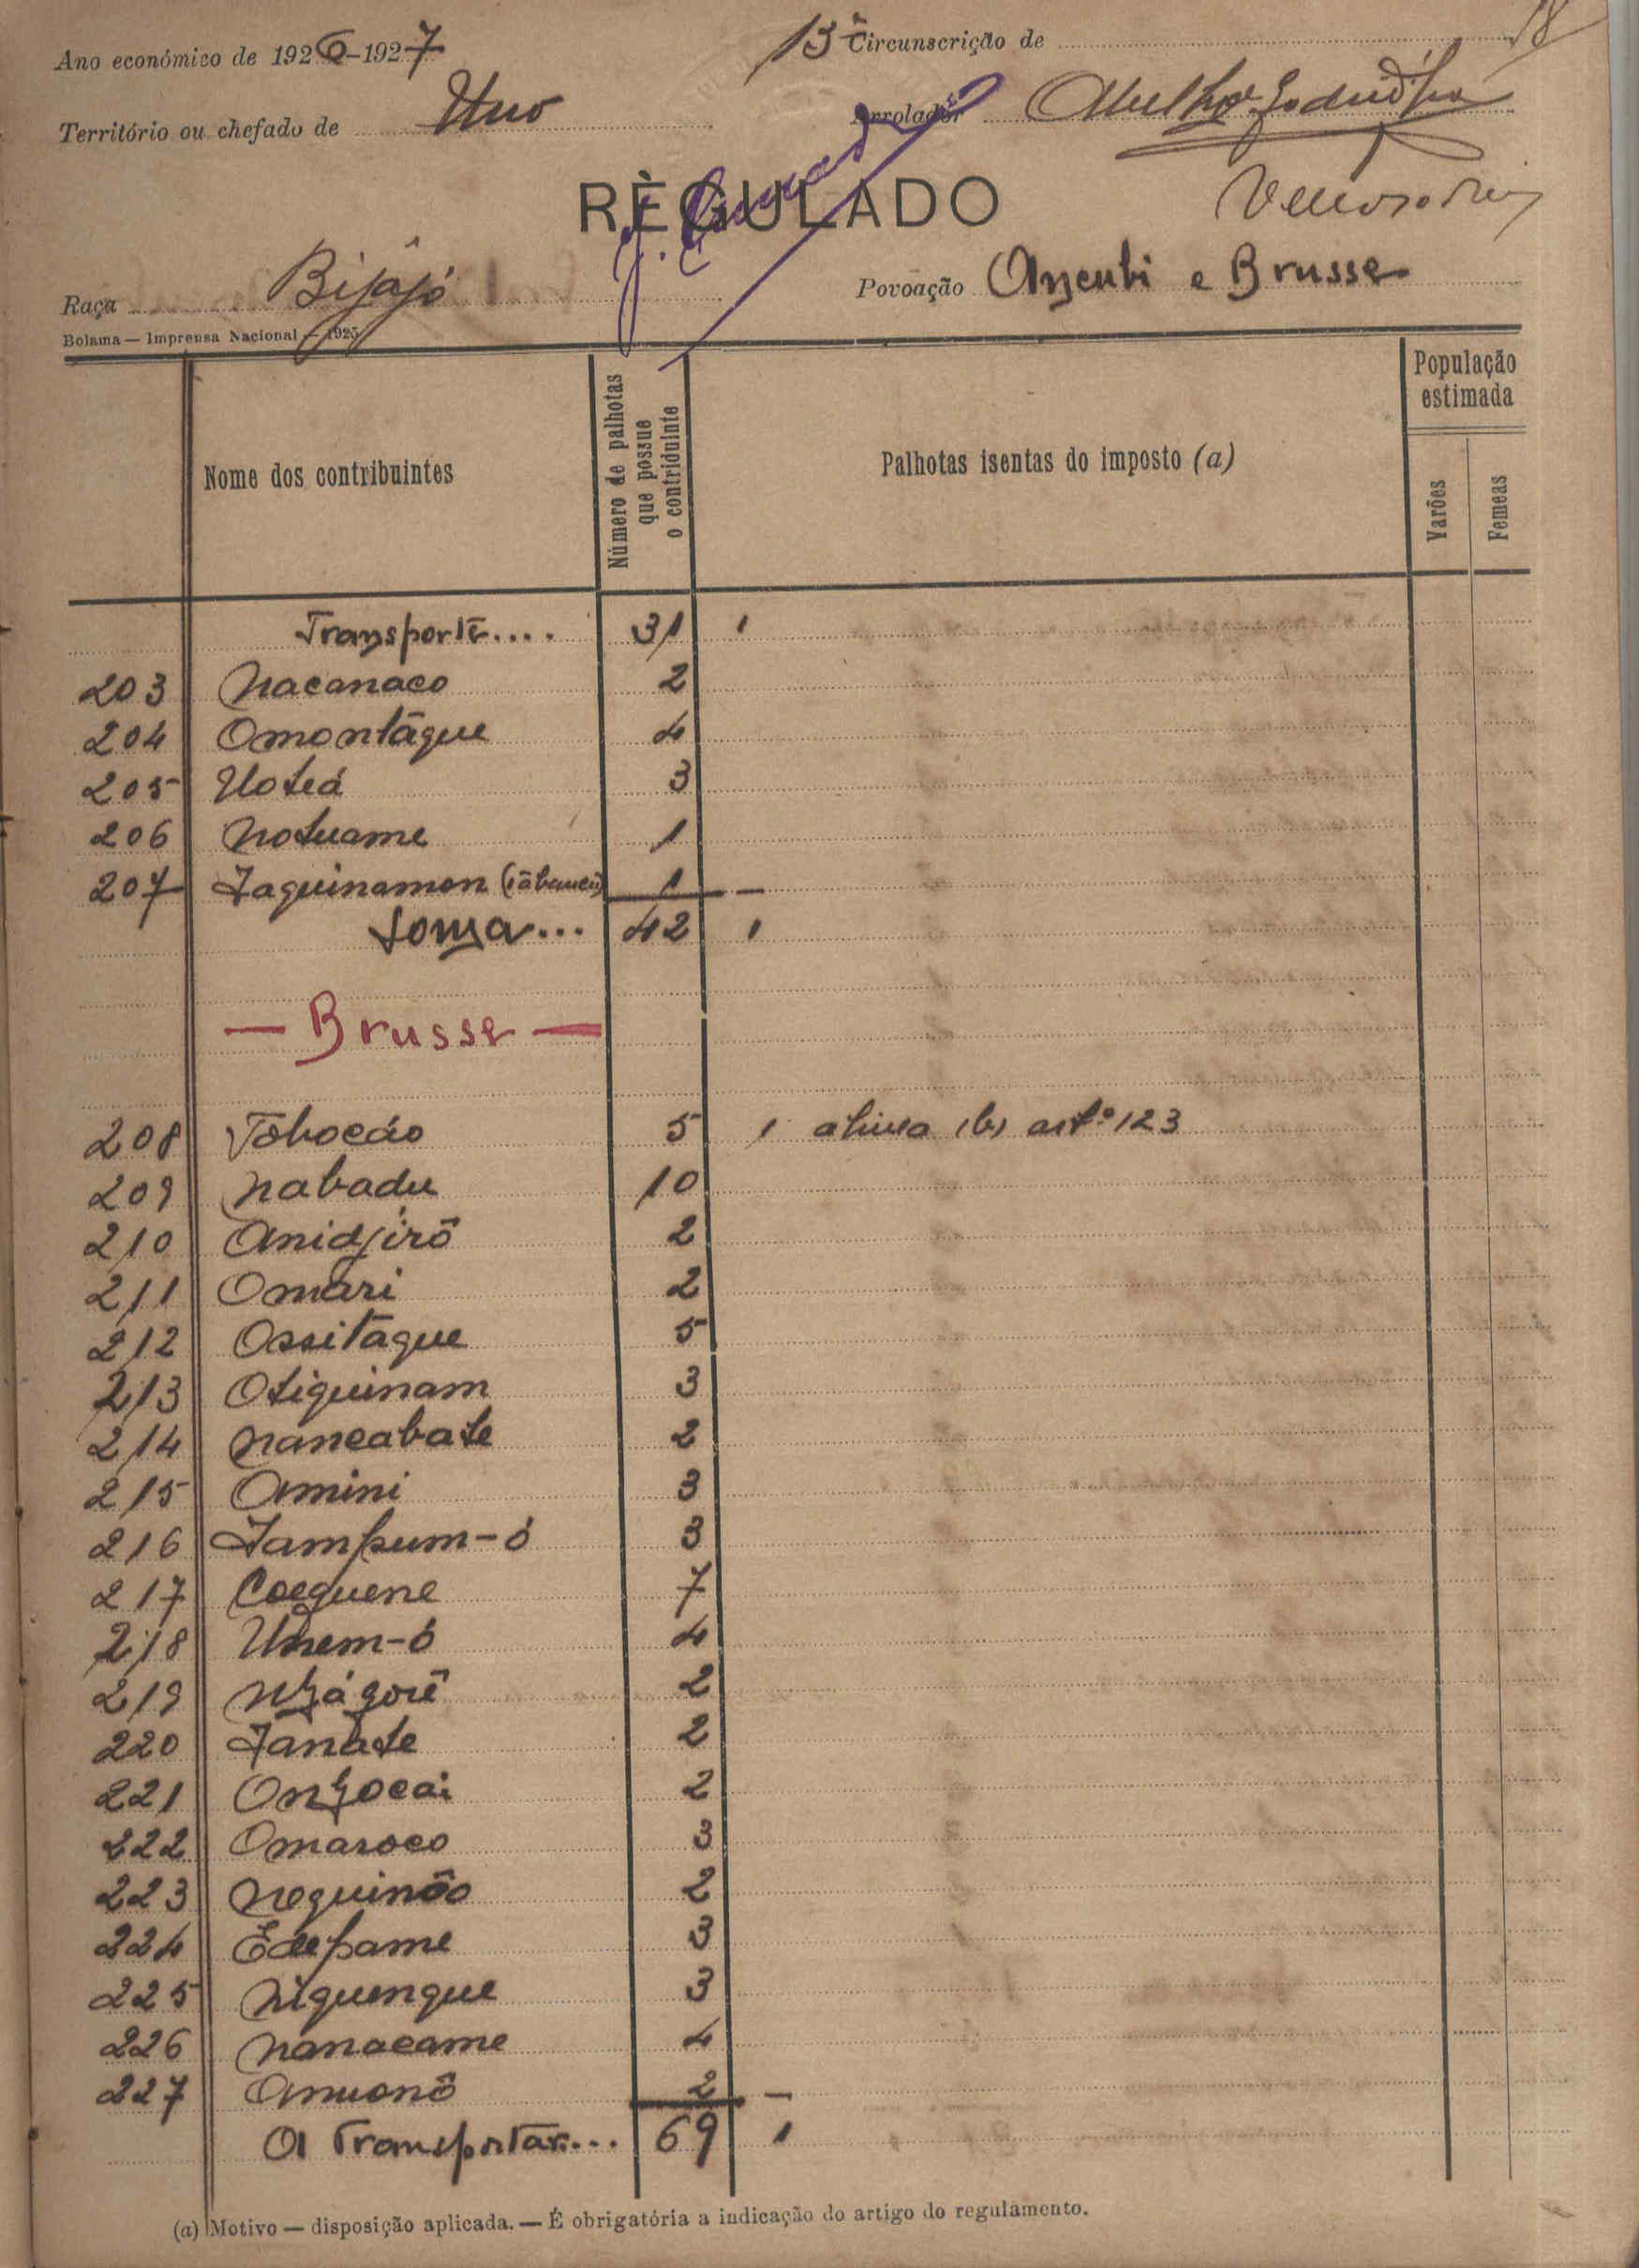 18
Ano económico de 1926-1927
13ª Circunscrição de
Território ou chefado de Uno
Arrolador
RÈGULADO
Raça Bijajó
Povoação Anzenbi e Brusse
Bolama — Imprensa Nacional — 1925
Nome dos contribuintes
Número de palhotas que possue o contriduinte
Palhotas isentas do imposto (a)
População estimada
Varões
Femeas
Transporte.... 31 1
203 Nacanaco 2
204 Omontãque 4
205 Uoteá 3
206 Notuame 1
207 Jaquinamon 1 —
Soma... 42 1
— Brusse —
208 Tobocão 5 1 alinea (b) artº 123
209 Nabadu 10
210 Anidjirô 2
211 Omari 2
212 Ossitaque 5
213 Otiquinam 3
214 Nancabate 2
215 Amini 3
216 Jampum-ó 3
217 Coeguene 7
218 Unem-ó 4
219 Nzágorê 2
220 Janate 2
221 Onzocai 2
222 Omaroco 3
223 Noquinôo 2
224 Edepame 3
225 Niquenque 3
226 Nanacame 4
227 Anuonô 2 —
A Transportar... 69 1
(a) Motivo — disposição aplicada. — É obrigatória a indicação do artigo do regulamento.